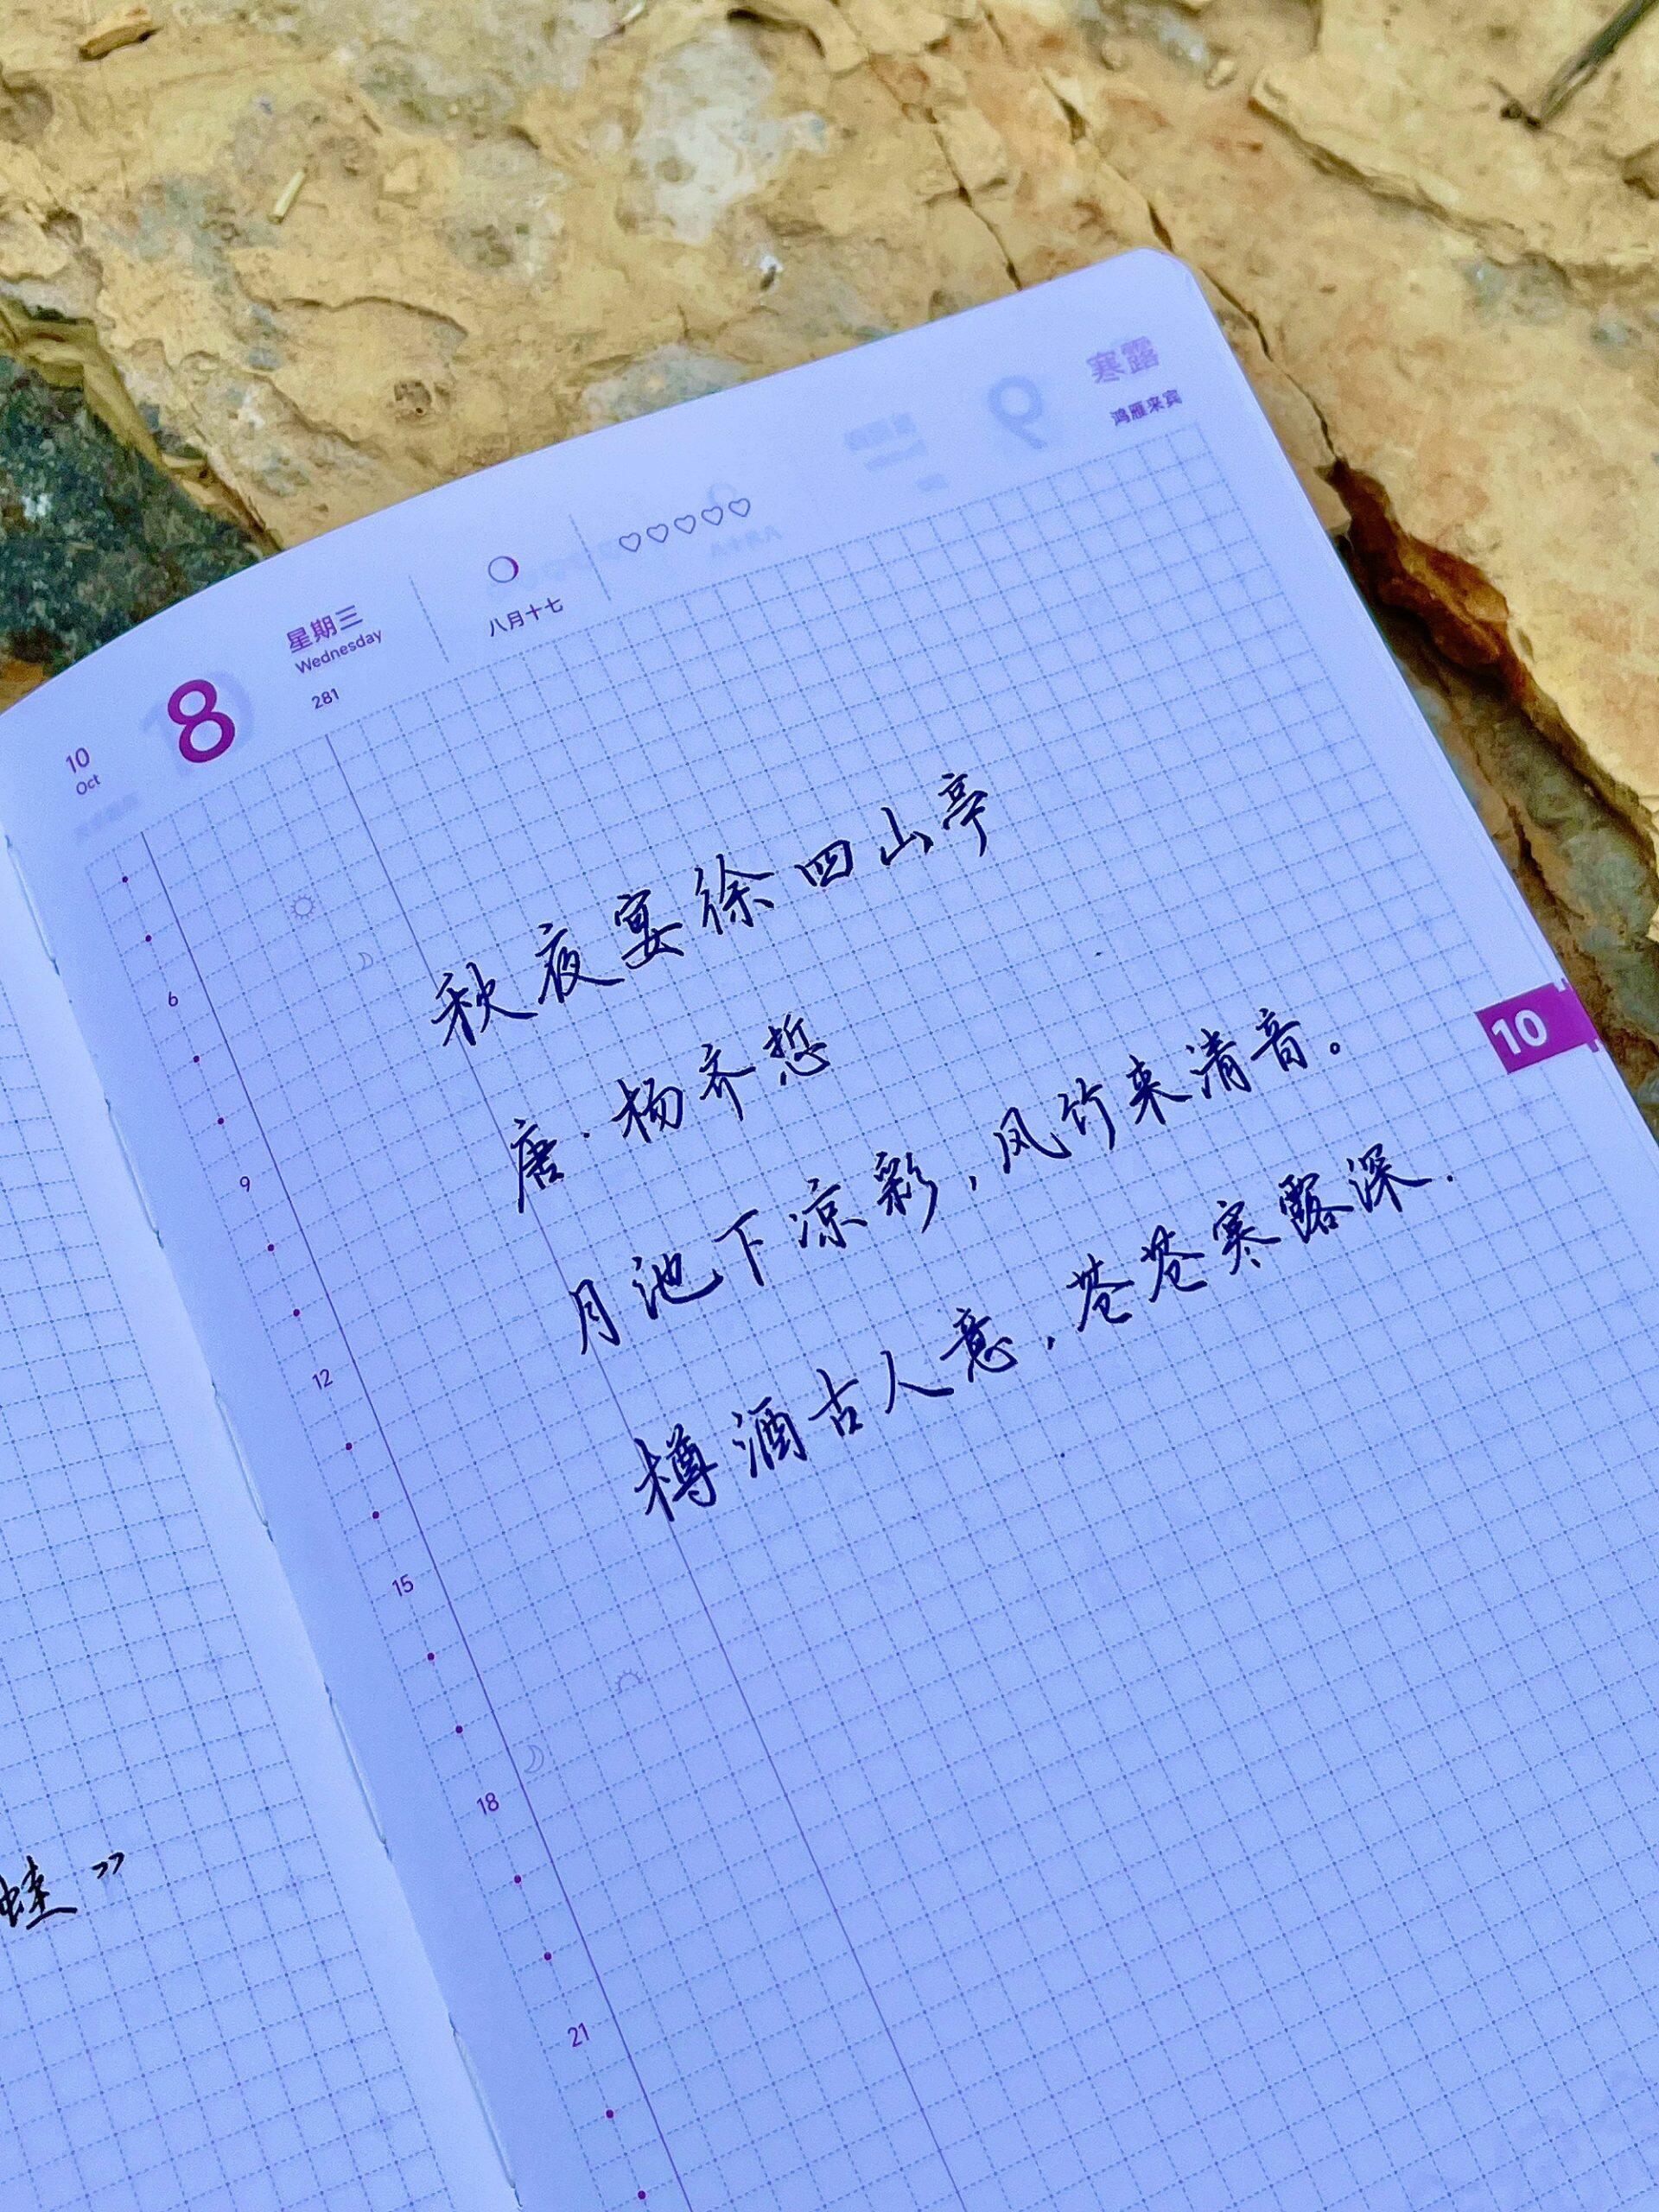 10
Oct
8
星期三
Wednesday
281
八月十七
寒露
鸿雁来宾
秋夜宴徐四山亭
唐·杨齐悊
月池下凉彩，风竹来清音。
樽酒古人意，苍苍寒露深.
10
6
9
12
15
18
21
蛙”